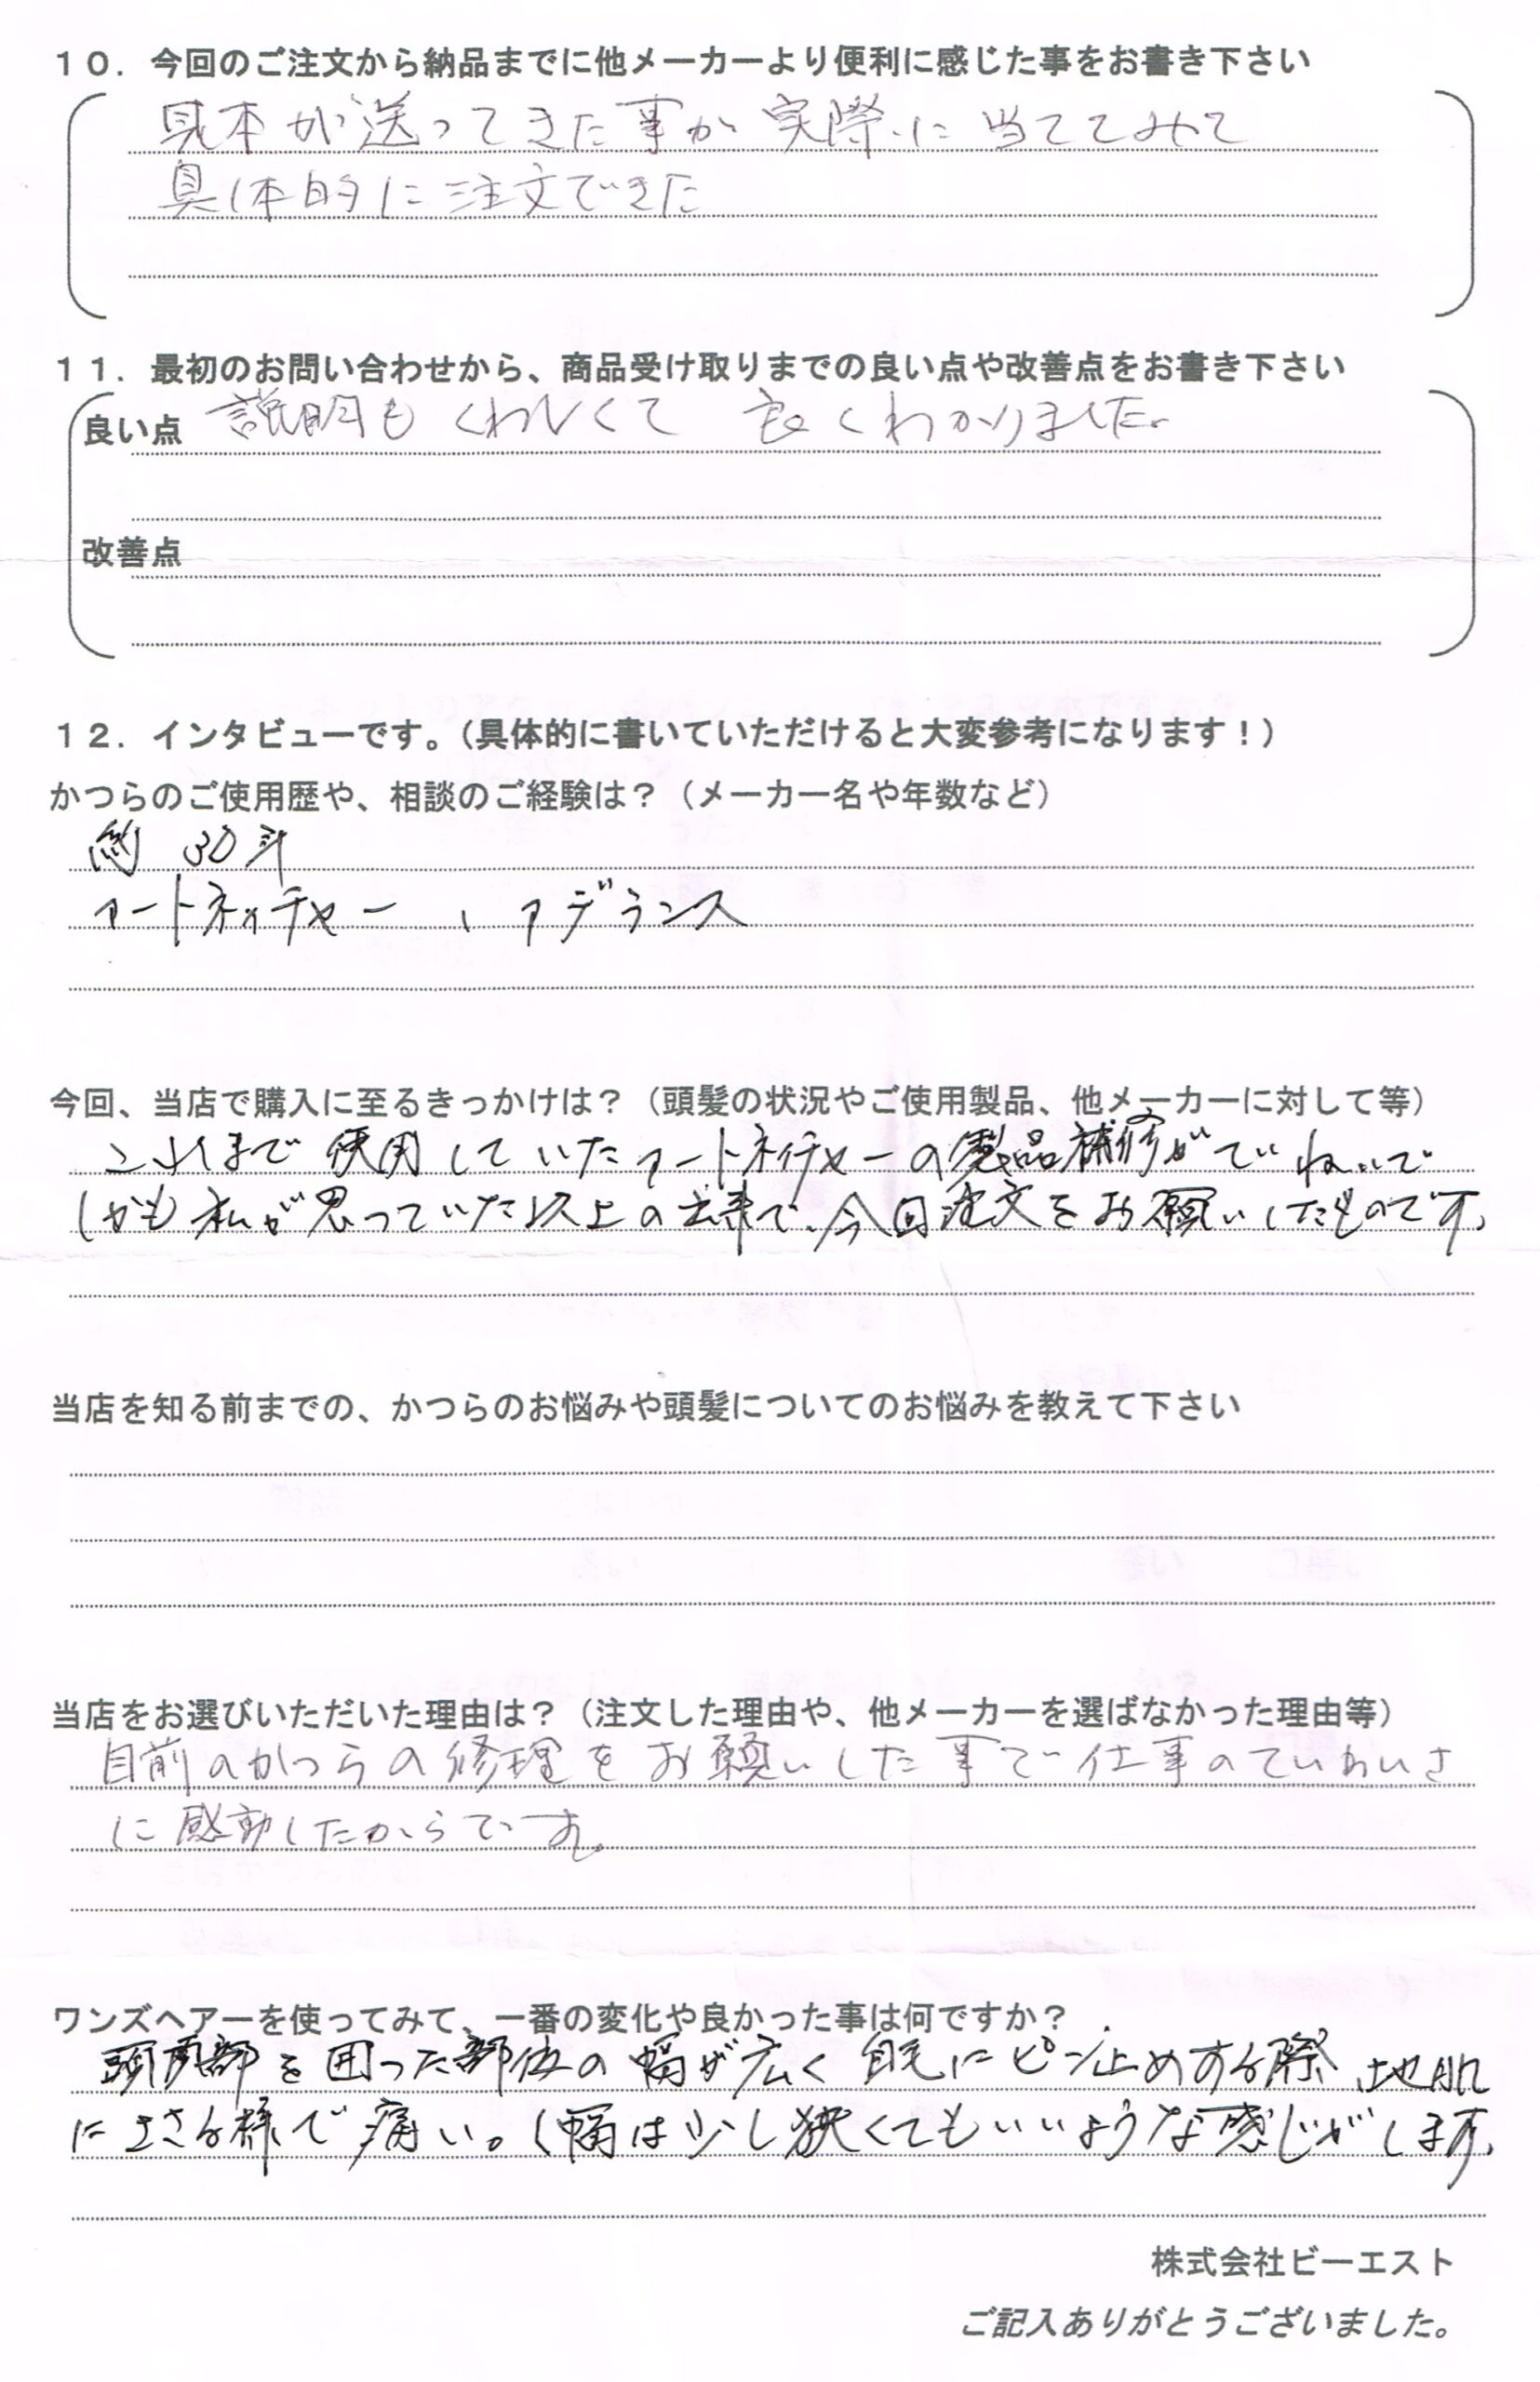 １０．今回のご注文から納品までに他メーカーより便利に感じた事をお書き下さい
見本が送ってきた事が実際に当ててみて
具体的に注文できた
１１．最初のお問い合わせから、商品受け取りまでの良い点や改善点をお書き下さい
良い点 説明もくわしくて 良くわかりました。
改善点
１２．インタビューです。（具体的に書いていただけると大変参考になります！）
かつらのご使用歴や、相談のご経験は？（メーカー名や年数など）
約 30年
アートネイチャー、アデランス
今回、当店で購入に至るきっかけは？（頭髪の状況やご使用製品、他メーカーに対して等）
これまで使用していたアートネイチャーの製品補修がていねいで
しかも私が思っていた以上の出来で、今回注文をお願いしたものです。
当店を知る前までの、かつらのお悩みや頭髪についてのお悩みを教えて下さい
当店をお選びいただいた理由は？（注文した理由や、他メーカーを選ばなかった理由等）
自前のかつらの修理をお願いした事で仕事のていねいさ
に感動したからです。
ワンズヘアーを使ってみて、一番の変化や良かった事は何ですか？
頭頂部を囲った部位の幅が広く自毛にピン止めする際、地肌
にささる様で痛い。（幅は少し狭くてもいいような感じがします。
株式会社ビーエスト
ご記入ありがとうございました。